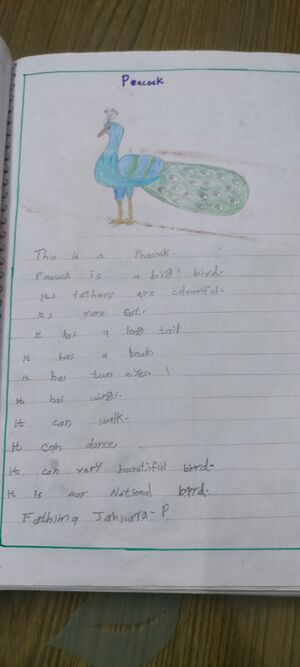 Peacock
This is a Peacock.
Peacock is a big bird.
Its fathers are colourful.
Its fort.
It has a long tail
It has a beak.
It has two eyes.
It has wings.
It can walk.
It can dance.
It can very beautiful bird.
It is our National bird.
Fathima - P